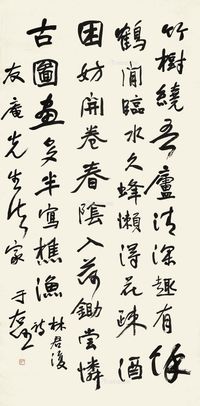 竹樹繞吾廬清深趣有餘
鶴閒臨水久蜂懶得花疎酒
困妨開卷春陰入荷鋤嘗憐
古圖畫多半寫樵漁 林君復詩
友庵先生法家 于右任